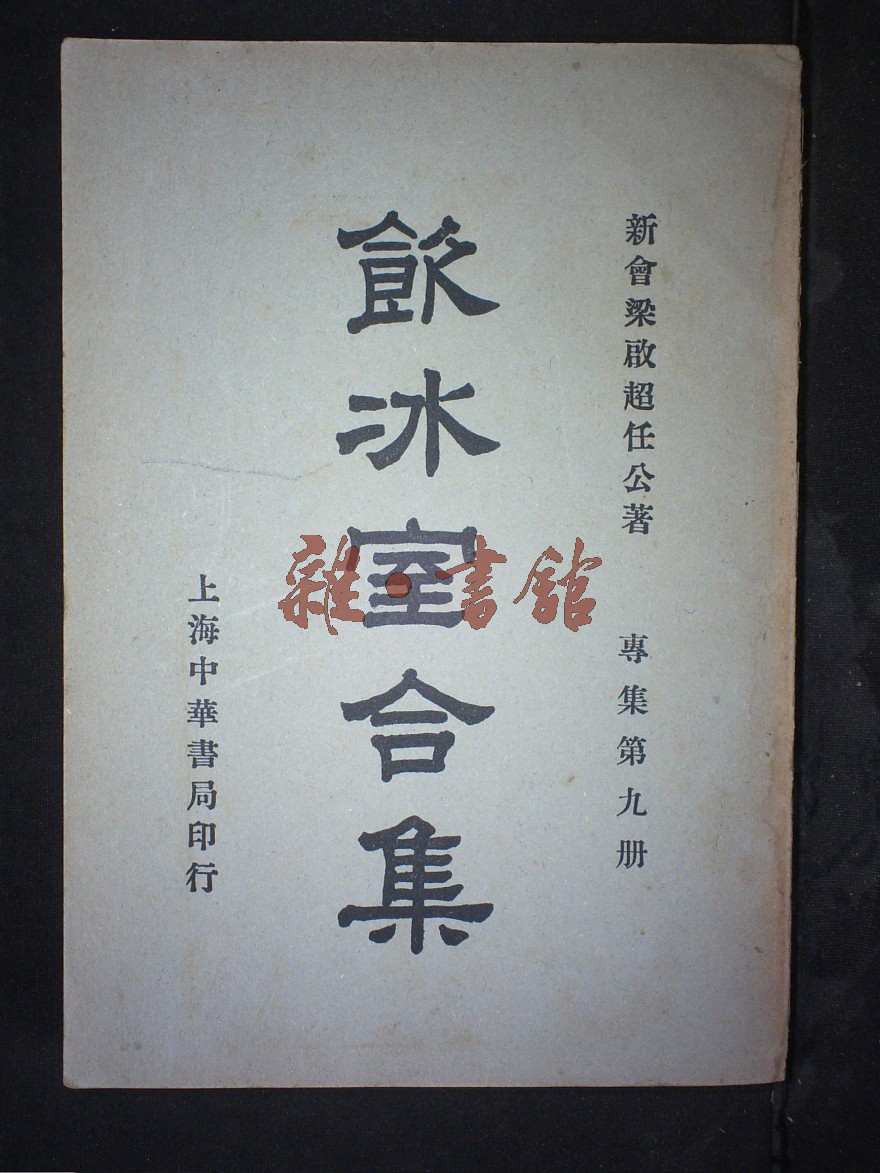 新會梁啟超任公著
專集第九册
飲冰室合集
上海中華書局印行
雜·書館